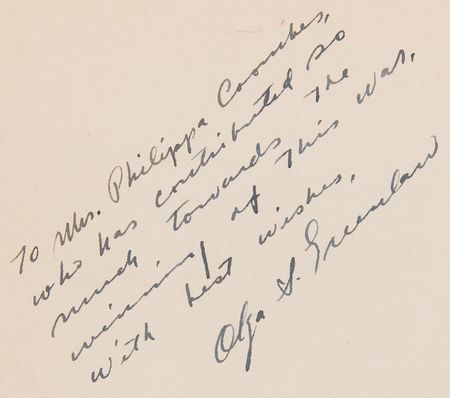 To Mrs. Philippa Coombes,
who has contributed so
much towards the
winning of this war,
with best wishes,
Olga S. Greenlaw